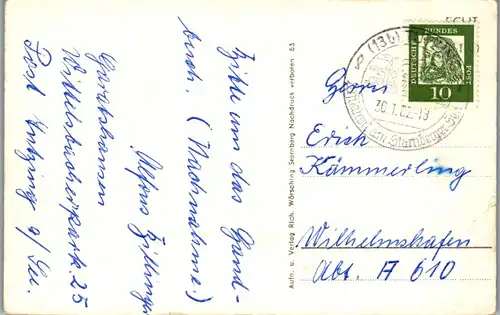 Bitte um das Hand-
buch. (Nachnahme.)
Alfons Zillinger
Garatshausen
Wittelsbacherpark. 25
Post Tutzing / See.
Aufn. u. Verlag Rich. Wörsching Starnberg Nachdruck verboten 53
ECHT
(13b)
30.1.62-19
am Starnberger See
DEUTSCHE BUNDESPOST
10
Herrn
Erich
Kämmerling
Wilhelmshafen
Abt. A 610